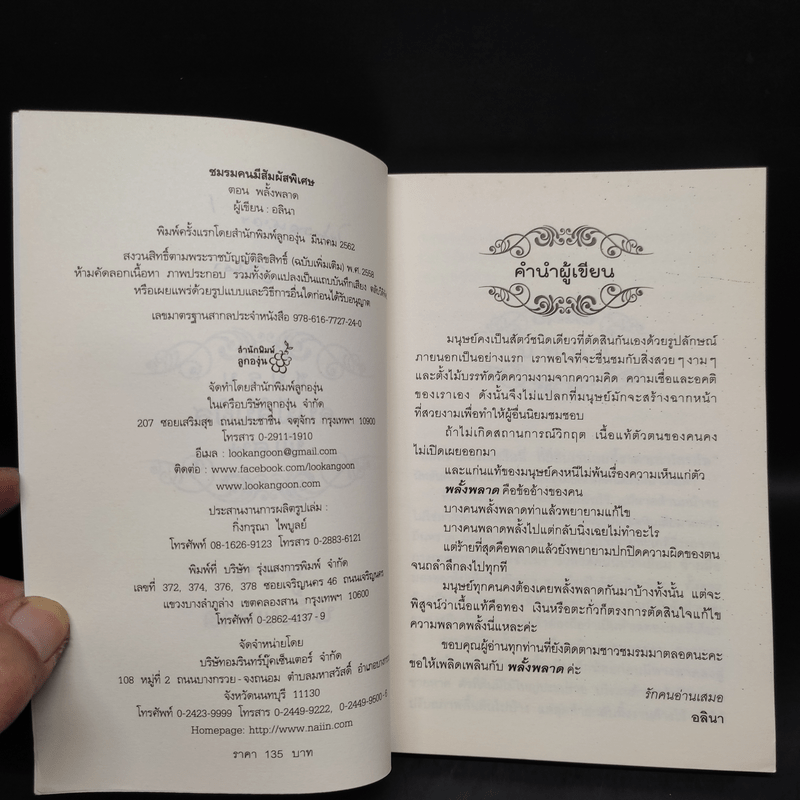 ชมรมคนมีสัมผัสพิเศษ
ตอน พลั้งพลาด
ผู้เขียน : อลินา
พิมพ์ครั้งแรกโดยสำนักพิมพ์ลูกองุ่น มีนาคม 2562
สงวนสิทธิ์ตามพระราชบัญญัติลิขสิทธิ์ (ฉบับเพิ่มเติม) พ.ศ. 2558
ห้ามคัดลอกเนื้อหา ภาพประกอบ รวมทั้งดัดแปลงเป็นแถบบันทึกเสียง
หรือเผยแพร่ด้วยรูปแบบและวิธีการอื่นใดก่อนได้รับอนุญาต
เลขมาตรฐานสากลประจำหนังสือ 978-616-7727-24-0
สำนักพิมพ์
ลูกองุ่น
จัดทำโดยสำนักพิมพ์ลูกองุ่น
ในเครือบริษัทลูกองุ่น จำกัด
207 ซอยเสริมสุข ถนนประชาชื่น จตุจักร กรุงเทพฯ 10900
โทรสาร 0-2911-1910
อีเมล : lookangoon@gmail.com
ติดต่อ : www.facebook.com/lookangoon
www.lookangoon.com
ประสานงานการผลิตรูปเล่ม :
กิ่งกรุณา ไพบูลย์
โทรศัพท์ 08-1626-9123 โทรสาร 0-2883-6121
พิมพ์ที่ บริษัท รุ่งแสงการพิมพ์ จำกัด
เลขที่ 372, 374, 376, 378 ซอยเจริญนคร 46 ถนนเจริญนคร
แขวงบางลำภูล่าง เขตคลองสาน กรุงเทพฯ 10600
โทรศัพท์ 0-2862-4137-9
จัดจำหน่ายโดย
บริษัทอมรินทร์บุ๊คเซ็นเตอร์ จำกัด
108 หมู่ที่ 2 ถนนบางกรวย-จงถนอม ตำบลมหาสวัสดิ์
จังหวัดนนทบุรี 11130
โทรศัพท์ 0-2423-9999 โทรสาร 0-2449-9222, 0-2449-9500-6
Homepage: http://www.naiin.com
ราคา 135 บาท
คำนำผู้เขียน
มนุษย์คงเป็นสัตว์ชนิดเดียวที่ตัดสินกันเองด้วยรูปลักษณ์
ภายนอกเป็นอย่างแรก เราพอใจที่จะชื่นชมกับสิ่งสวยๆ งามๆ
และตั้งไม้บรรทัดวัดความงามจากความคิด ความเชื่อและอคติ
ของเราเอง ดังนั้นจึงไม่แปลกที่มนุษย์มักจะสร้างฉากหน้า
ที่สวยงามเพื่อทำให้ผู้อื่นนิยมชมชอบ
ถ้าไม่เกิดสถานการณ์วิกฤต เนื้อแท้ตัวตนของคนคง
ไม่เปิดเผยออกมา
และแก่นแท้ของมนุษย์คงหนีไม่พ้นเรื่องความเห็นแก่ตัว
พลั้งพลาด คือข้ออ้างของคน
บางคนพลั้งพลาดทำแล้วพยายามแก้ไข
บางคนพลาดพลั้งไปแต่กลับนิ่งเฉยไม่ทำอะไร
แต่ร้ายที่สุดคือพลาดแล้วยังพยายามปกปิดความผิดของตน
จนถลำลึกลงไปทุกที
มนุษย์ทุกคนคงต้องเคยพลั้งพลาดกันมาบ้างทั้งนั้น แต่จะ
พิสูจน์ว่าเนื้อแท้คือทอง เงินหรือตะกั่วก็ตรงการตัดสินใจแก้ไข
ความพลาดพลั้งนี่แหละค่ะ
ขอบคุณผู้อ่านทุกท่านที่ยังติดตามชาวชมรมมาตลอดนะคะ
ขอให้เพลิดเพลินกับ พลั้งพลาด ค่ะ
รักคนอ่านเสมอ
อลินา